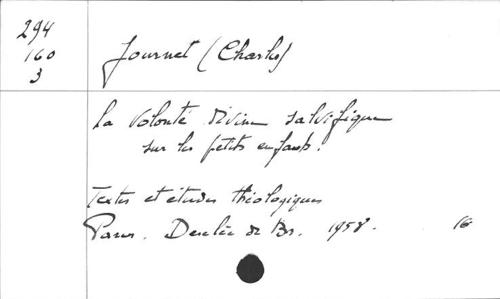 294
160
3
Journet (Charles)
La Volonté divine salvifique
sur les petits enfants.
Textes et études théologiques
Paris. Desclée de Br. 1958. 16